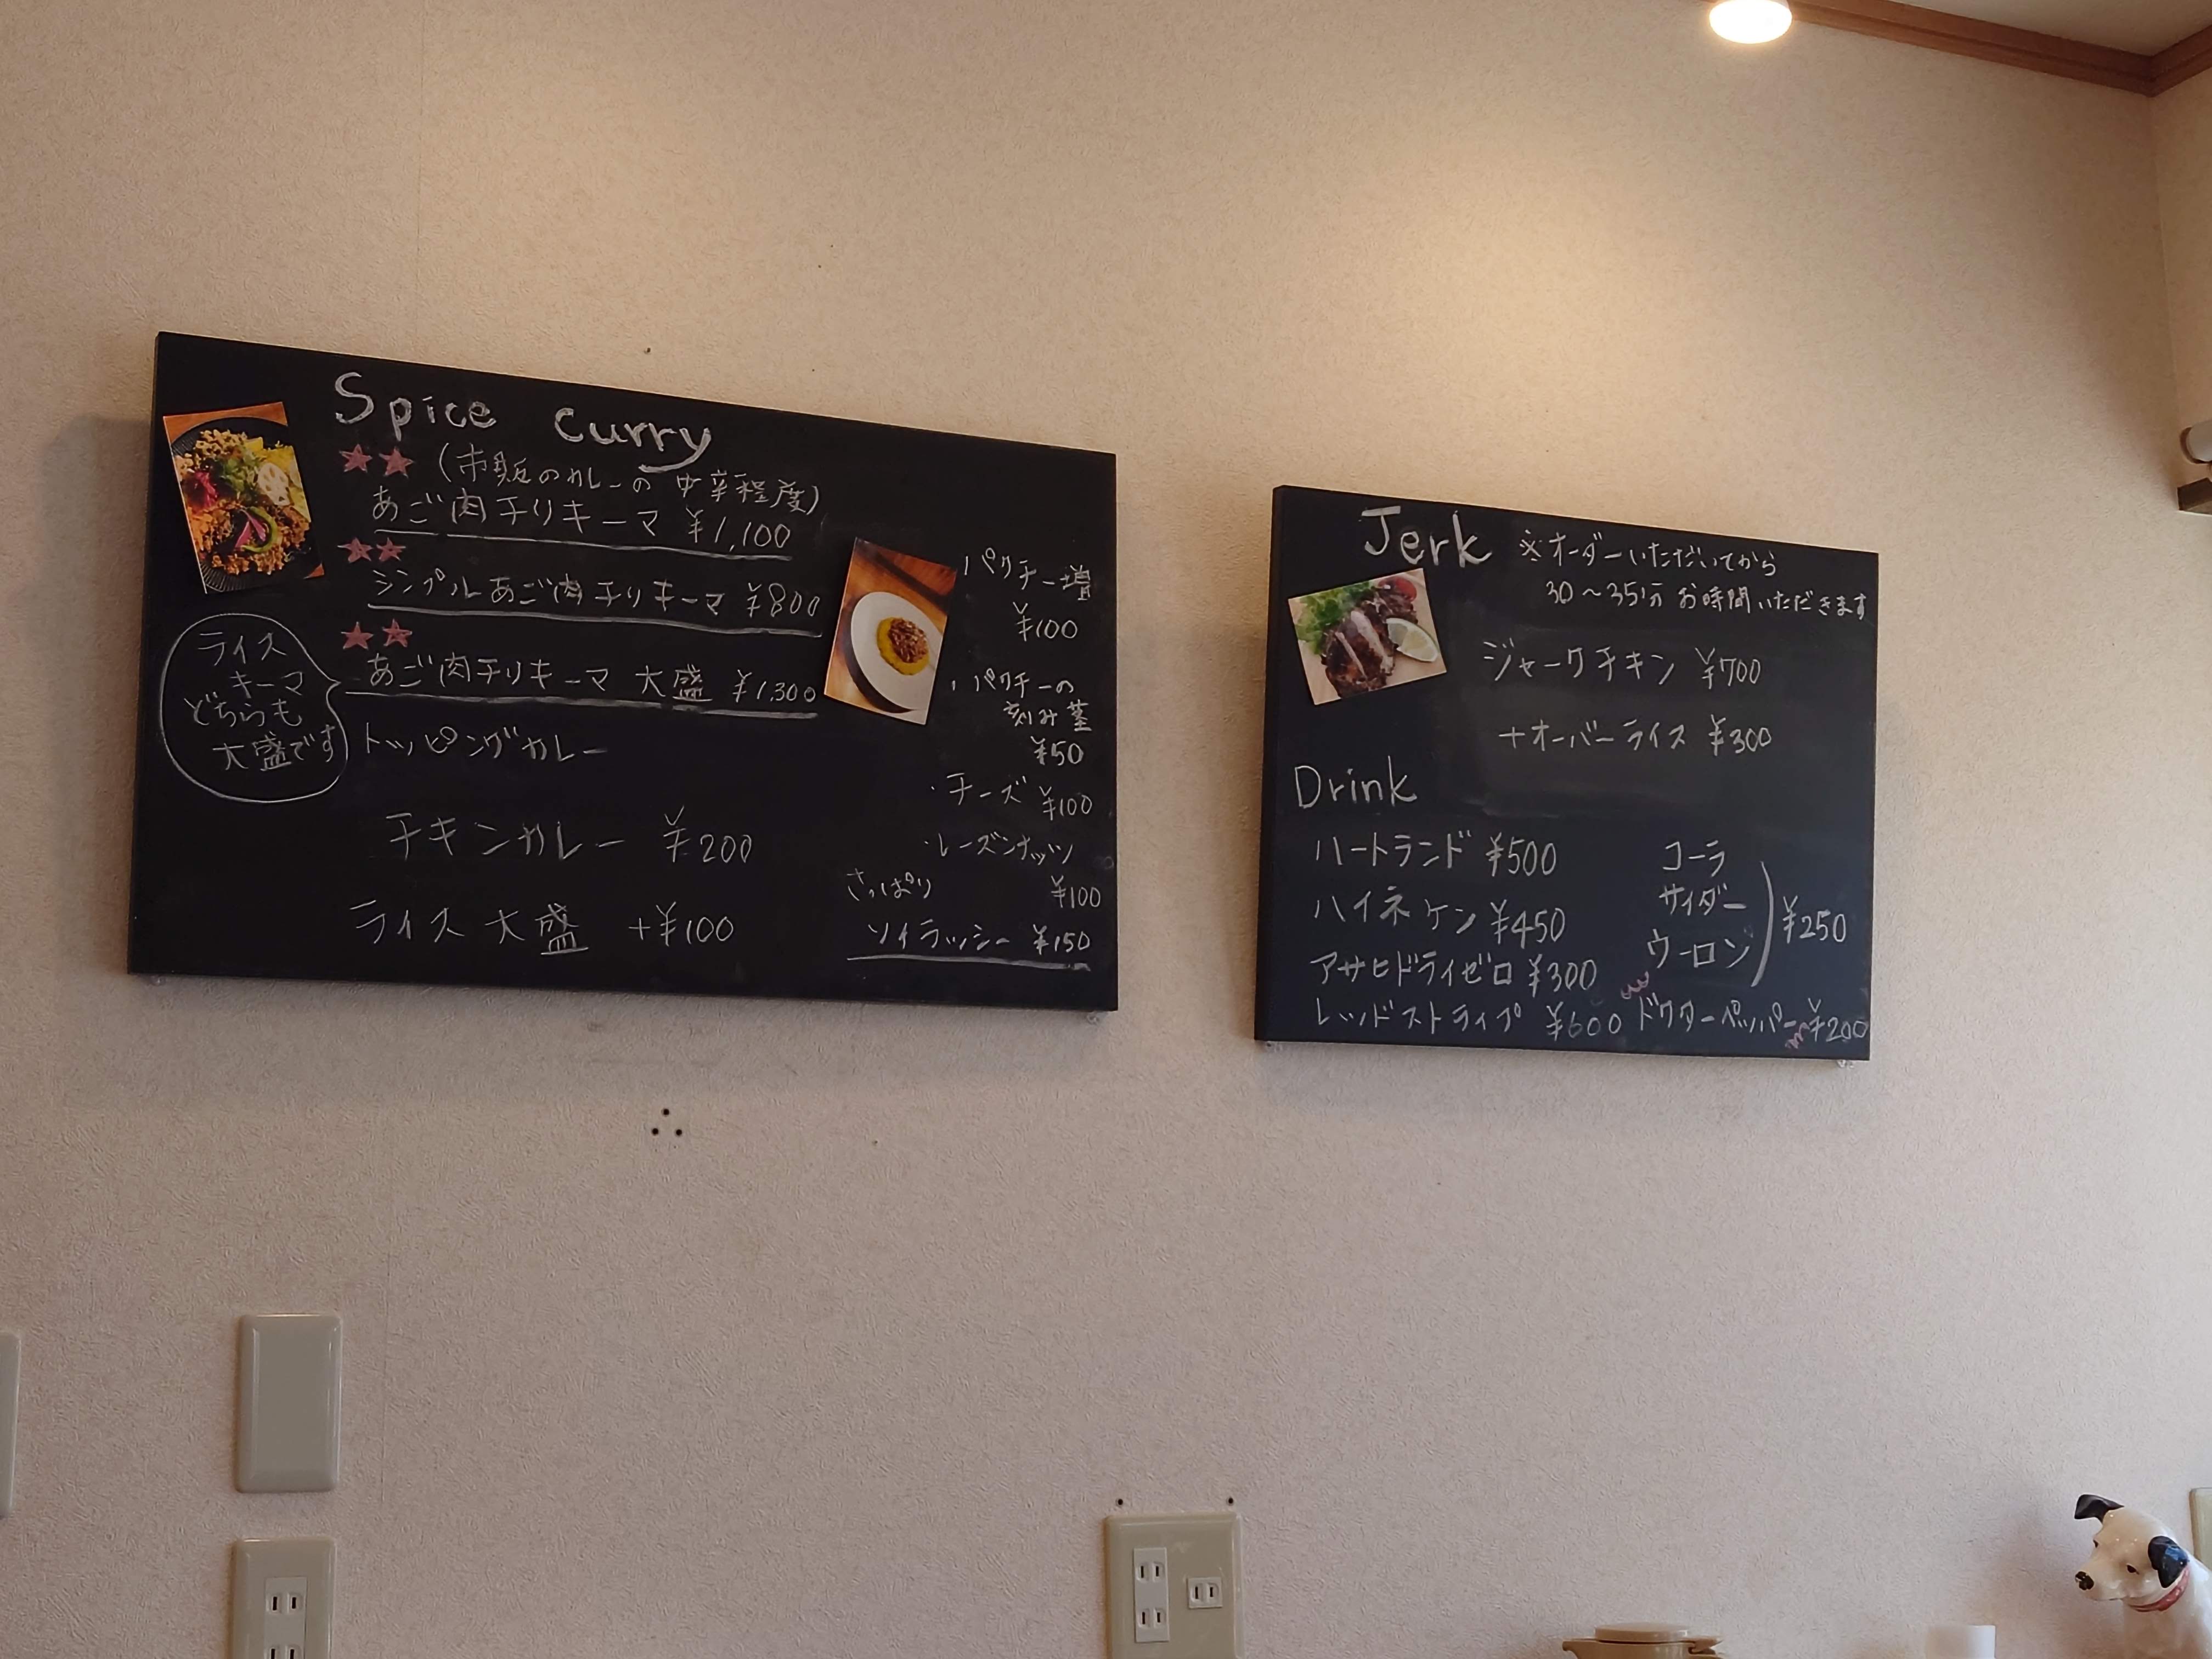 Spice curry
★★ (市販のカレーの中辛程度)
あご肉チリキーマ ¥1,100
★★
シンプルあご肉チリキーマ ¥800
★★
あご肉チリキーマ 大盛 ¥1,300
ライス
キーマ
どちらも
大盛です
トッピングカレー
チキンカレー ¥200
ライス大盛 +¥100
・パクチー増
¥100
・パクチーの
刻み茎
¥50
・チーズ ¥100
・レーズンナッツ
¥100
さっぱり
ソイラッシー ¥150
Jerk ※オーダーいただいてから
30〜35分 お時間いただきます
ジャークチキン ¥700
+オーバーライス ¥300
Drink
ハートランド ¥500
ハイネケン ¥450
アサヒドライゼロ ¥300
レッドストライプ ¥600
コーラ
サイダー
ウーロン
¥250
ドクターペッパー ¥200